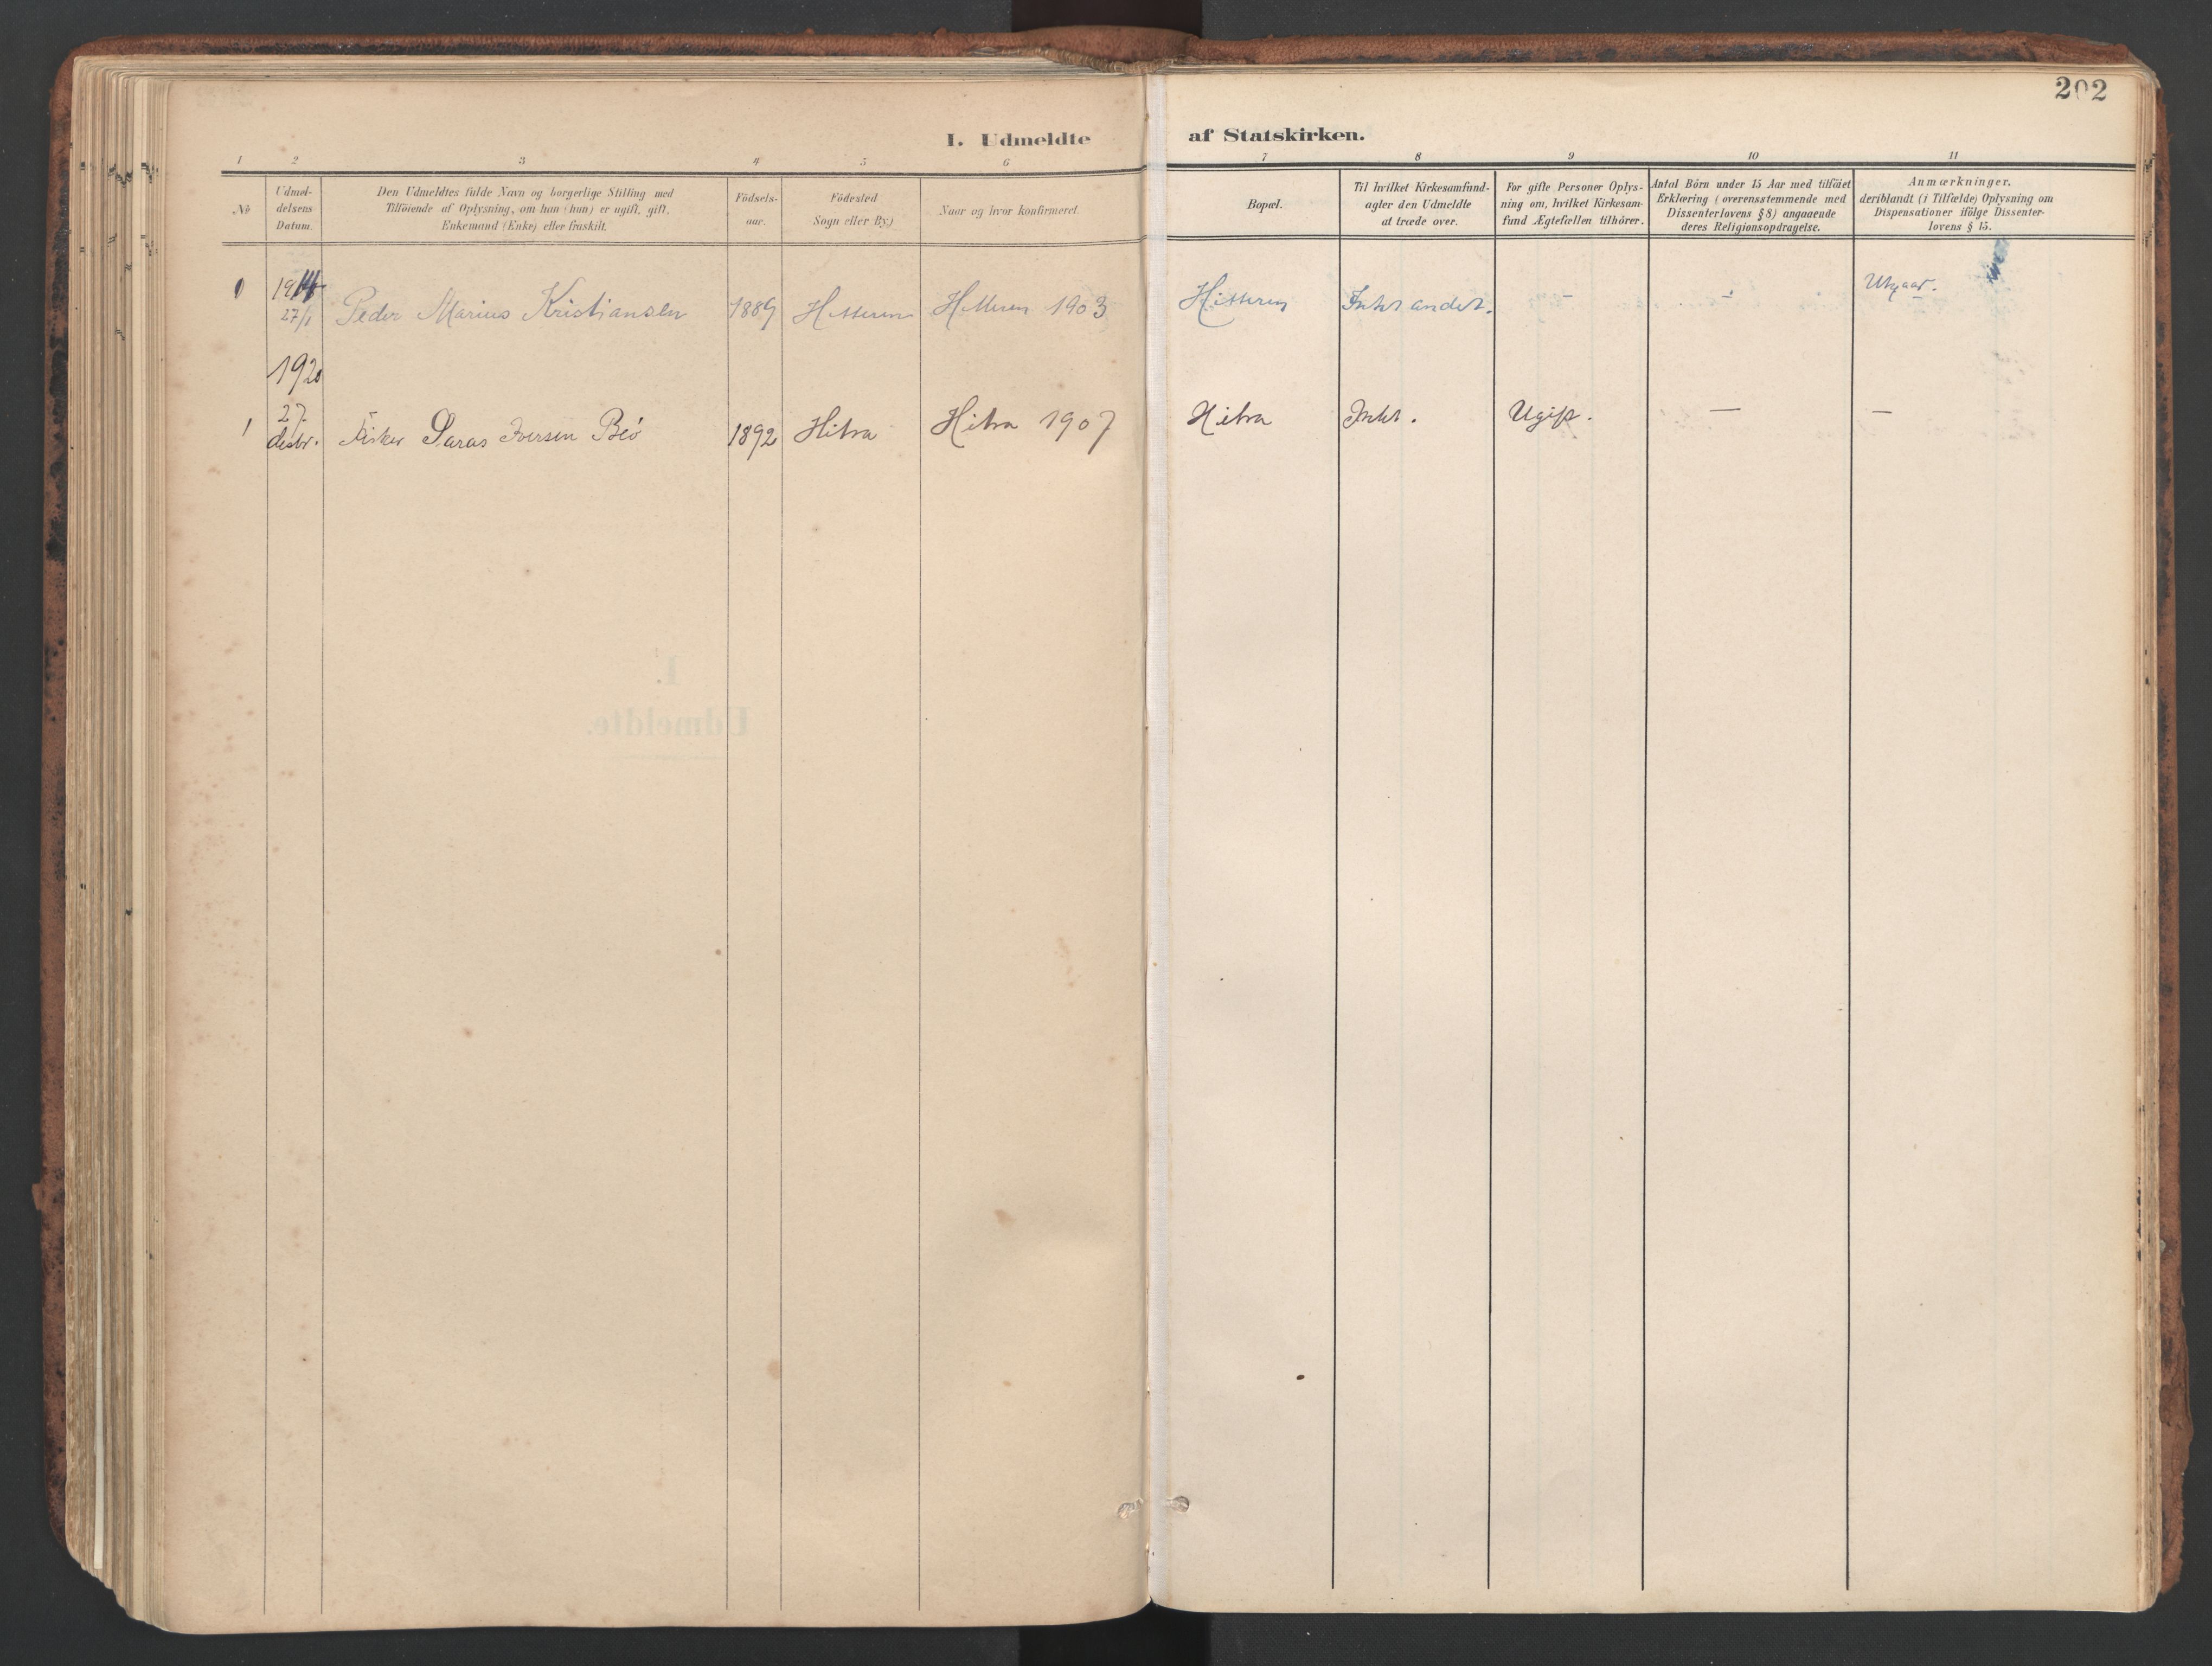 202
I. Udmeldte af Statskirken.
1 2 3 4 5 6 7 8 9 10 11
No
Udmel-
delsens
Datum.
Den Udmeldtes fulde Navn og borgerlige Stilling med
Tilföiende af Oplysning, om han (hun) er ugift, gift,
Enkemand (Enke) eller fraskilt.
Födsels-
aar.
Födested
Sogn eller By.)
Naar og hvor konfirmeret.
Bopæl.
Til hvilket Kirkesamfund-
agter den Udmeldte
at træde over.
For gifte Personer Oplys-
ning om, hvilket Kirkesam-
fund Ægtefællen tilhörer.
Antal Börn under 15 Aar med tilföiet
Erklæring (overensstemmende med
Dissenterlovens § 8) angaaende
deres Religionsopdragelse.
Anmærkninger,
deriblandt (i Tilfælde) Oplysning om
Dispensationer ifölge Dissenter-
lovens § 15.
1914
27/1 Peder Marius Kristiansen 1889 Hitteren Hitteren 1903 Hitteren Intet andet. - - Utgaar.
1920
1 27 desbr. Fisker Saras Iversen Beö 1892 Hitra Hitra 1907 Hitra Intet. Ugift. — —
I.
Udmeldte.